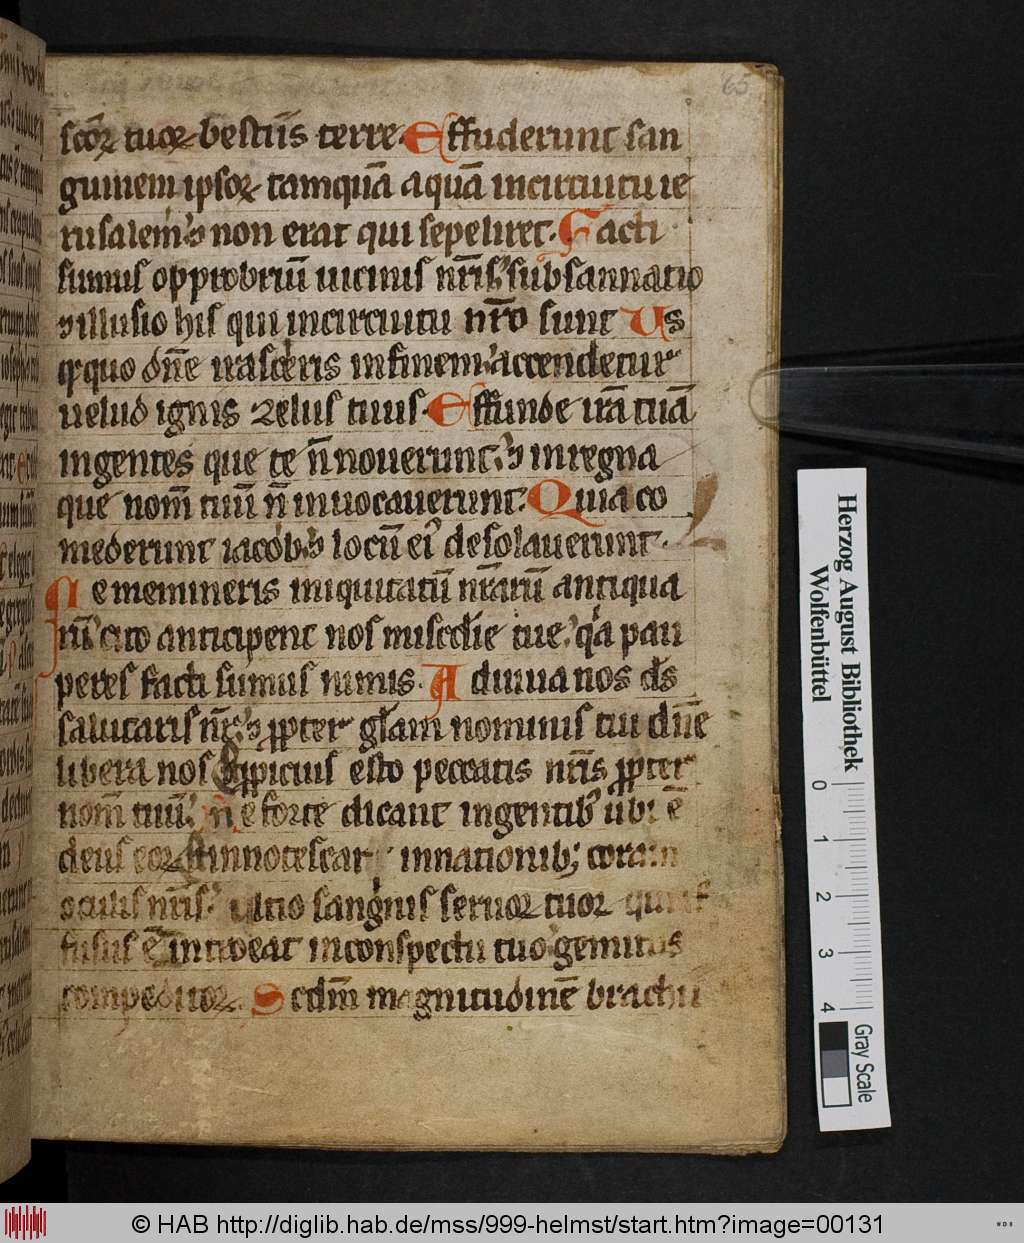 65
scõꝝ tuoꝝ bestiis terre. Effuderunt san
guinem ipsoꝝ tamquã aquã incircuitu ie
rusalem ⁊ non erat qui sepeliret. Facti
sumus opprobriũ uicinis nr̃is subsannatio
⁊ illusio his qui incircuitu nr̃o sunt Us
qꝫquo dñe irasceris infinem accendetur
uelud ignis zelus tuus. Effunde irã tuã
ingentes que te ñ nouerunt ⁊ inregna
que nom̃ tuũ ñ inuocauerunt. Quia co
mederunt iacob ⁊ locũ eiꝰ desolauerunt.
Ne memineris iniquitatũ nr̃arũ antiqua
rũ cito anticipent nos misc̃die tue qͣa pau
peres facti sumus nimis. Adiuua nos d̃s
salutaris nr̃ ⁊ ꝓpter gl̃am nominis tui dñe
libera nos ⁊ ꝓpicius esto peccatis nr̃is ꝓpter
nom̃ tuũ. Ne forte dicant ingentibꝰ ubi ẽ
deus eoꝝ ⁊ innotescat innationibꝫ coram
oculis nr̃is. Ultio sangⁱnis seruoꝝ tuoꝝ qui ef
fusus ẽ introeat inconspectu tuo gemitus
compeditoꝝ. Scdm̃ magnitudinẽ brachii
Herzog August Bibliothek
Wolfenbüttel
0 1 2 3 4
Gray Scale
© HAB http://diglib.hab.de/mss/999-helmst/start.htm?image=00131